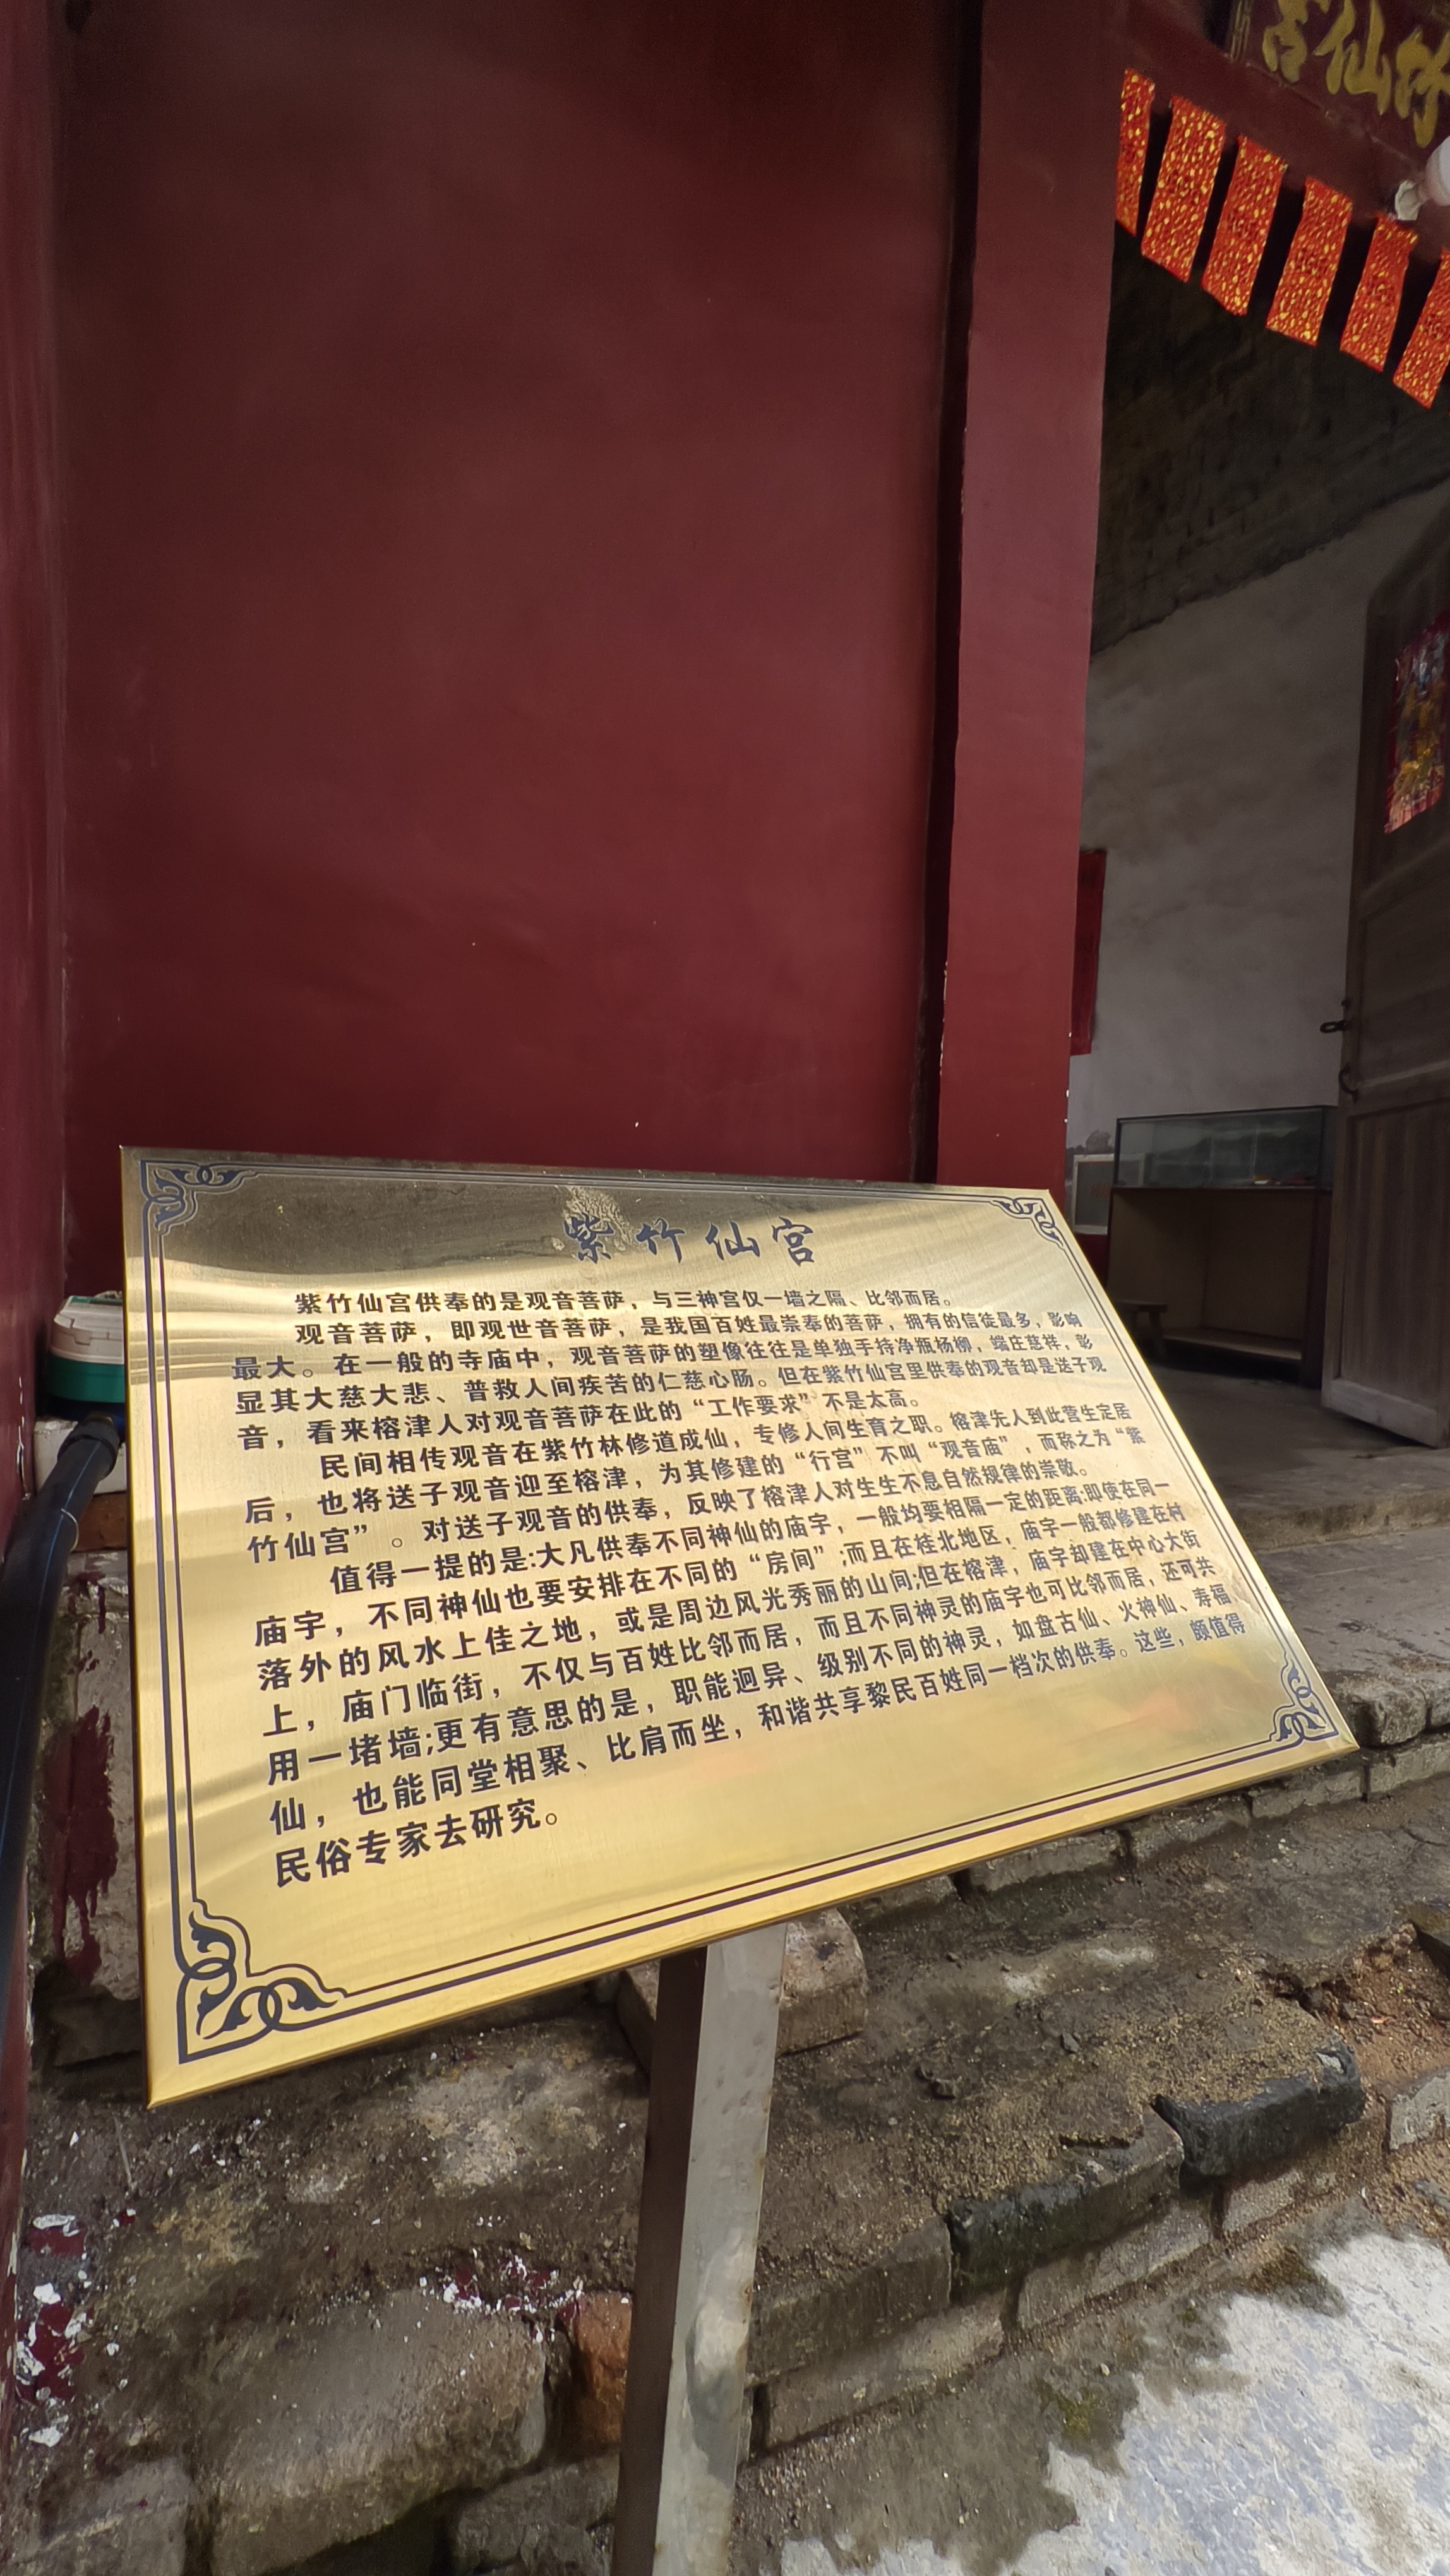 竹仙宫
紫竹仙宫
紫竹仙宫供奉的是观音菩萨，与三神宫仅一墙之隔、比邻而居。
观音菩萨，即观世音菩萨，是我国百姓最崇奉的菩萨，拥有的信徒最多，影响
最大。在一般的寺庙中，观音菩萨的塑像往往是单独手持净瓶杨柳，端庄慈祥，彰
显其大慈大悲、普救人间疾苦的仁慈心肠。但在紫竹仙宫里供奉的观音却是送子观
音，看来榕津人对观音菩萨在此的“工作要求”不是太高。
民间相传观音在紫竹林修道成仙，专修人间生育之职。榕津先人到此营生定居
后，也将送子观音迎至榕津，为其修建的“行宫”不叫“观音庙”，而称之为“紫
竹仙宫”。对送子观音的供奉，反映了榕津人对生生不息自然规律的崇敬。
值得一提的是:大凡供奉不同神仙的庙宇，一般均要相隔一定的距离;即使在同一
庙宇，不同神仙也要安排在不同的“房间”;而且在桂北地区，庙宇一般都修建在村
落外的风水上佳之地，或是周边风光秀丽的山间;但在榕津，庙宇却建在中心大街
上，庙门临街，不仅与百姓比邻而居，而且不同神灵的庙宇也可比邻而居，还可共
用一堵墙;更有意思的是，职能迥异、级别不同的神灵，如盘古仙、火神仙、寿福
仙，也能同堂相聚、比肩而坐，和谐共享黎民百姓同一档次的供奉。这些，颇值得
民俗专家去研究。